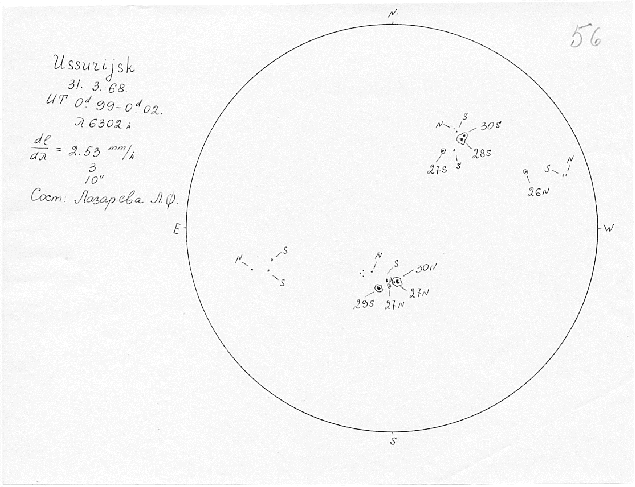 56
Ussurijsk
31. 3. 68.
UT 0ᵈ 99-0ᵈ 02.
λ 6302 Å
dl/dλ = 2.53 mm/Å
3
10"
Сост: Лазарева Л.Ф.
N
S
N
30S
28S
27S
S
N
S
26N
E
W
S
N
S
N
S
30N
29S
27N
27N
S